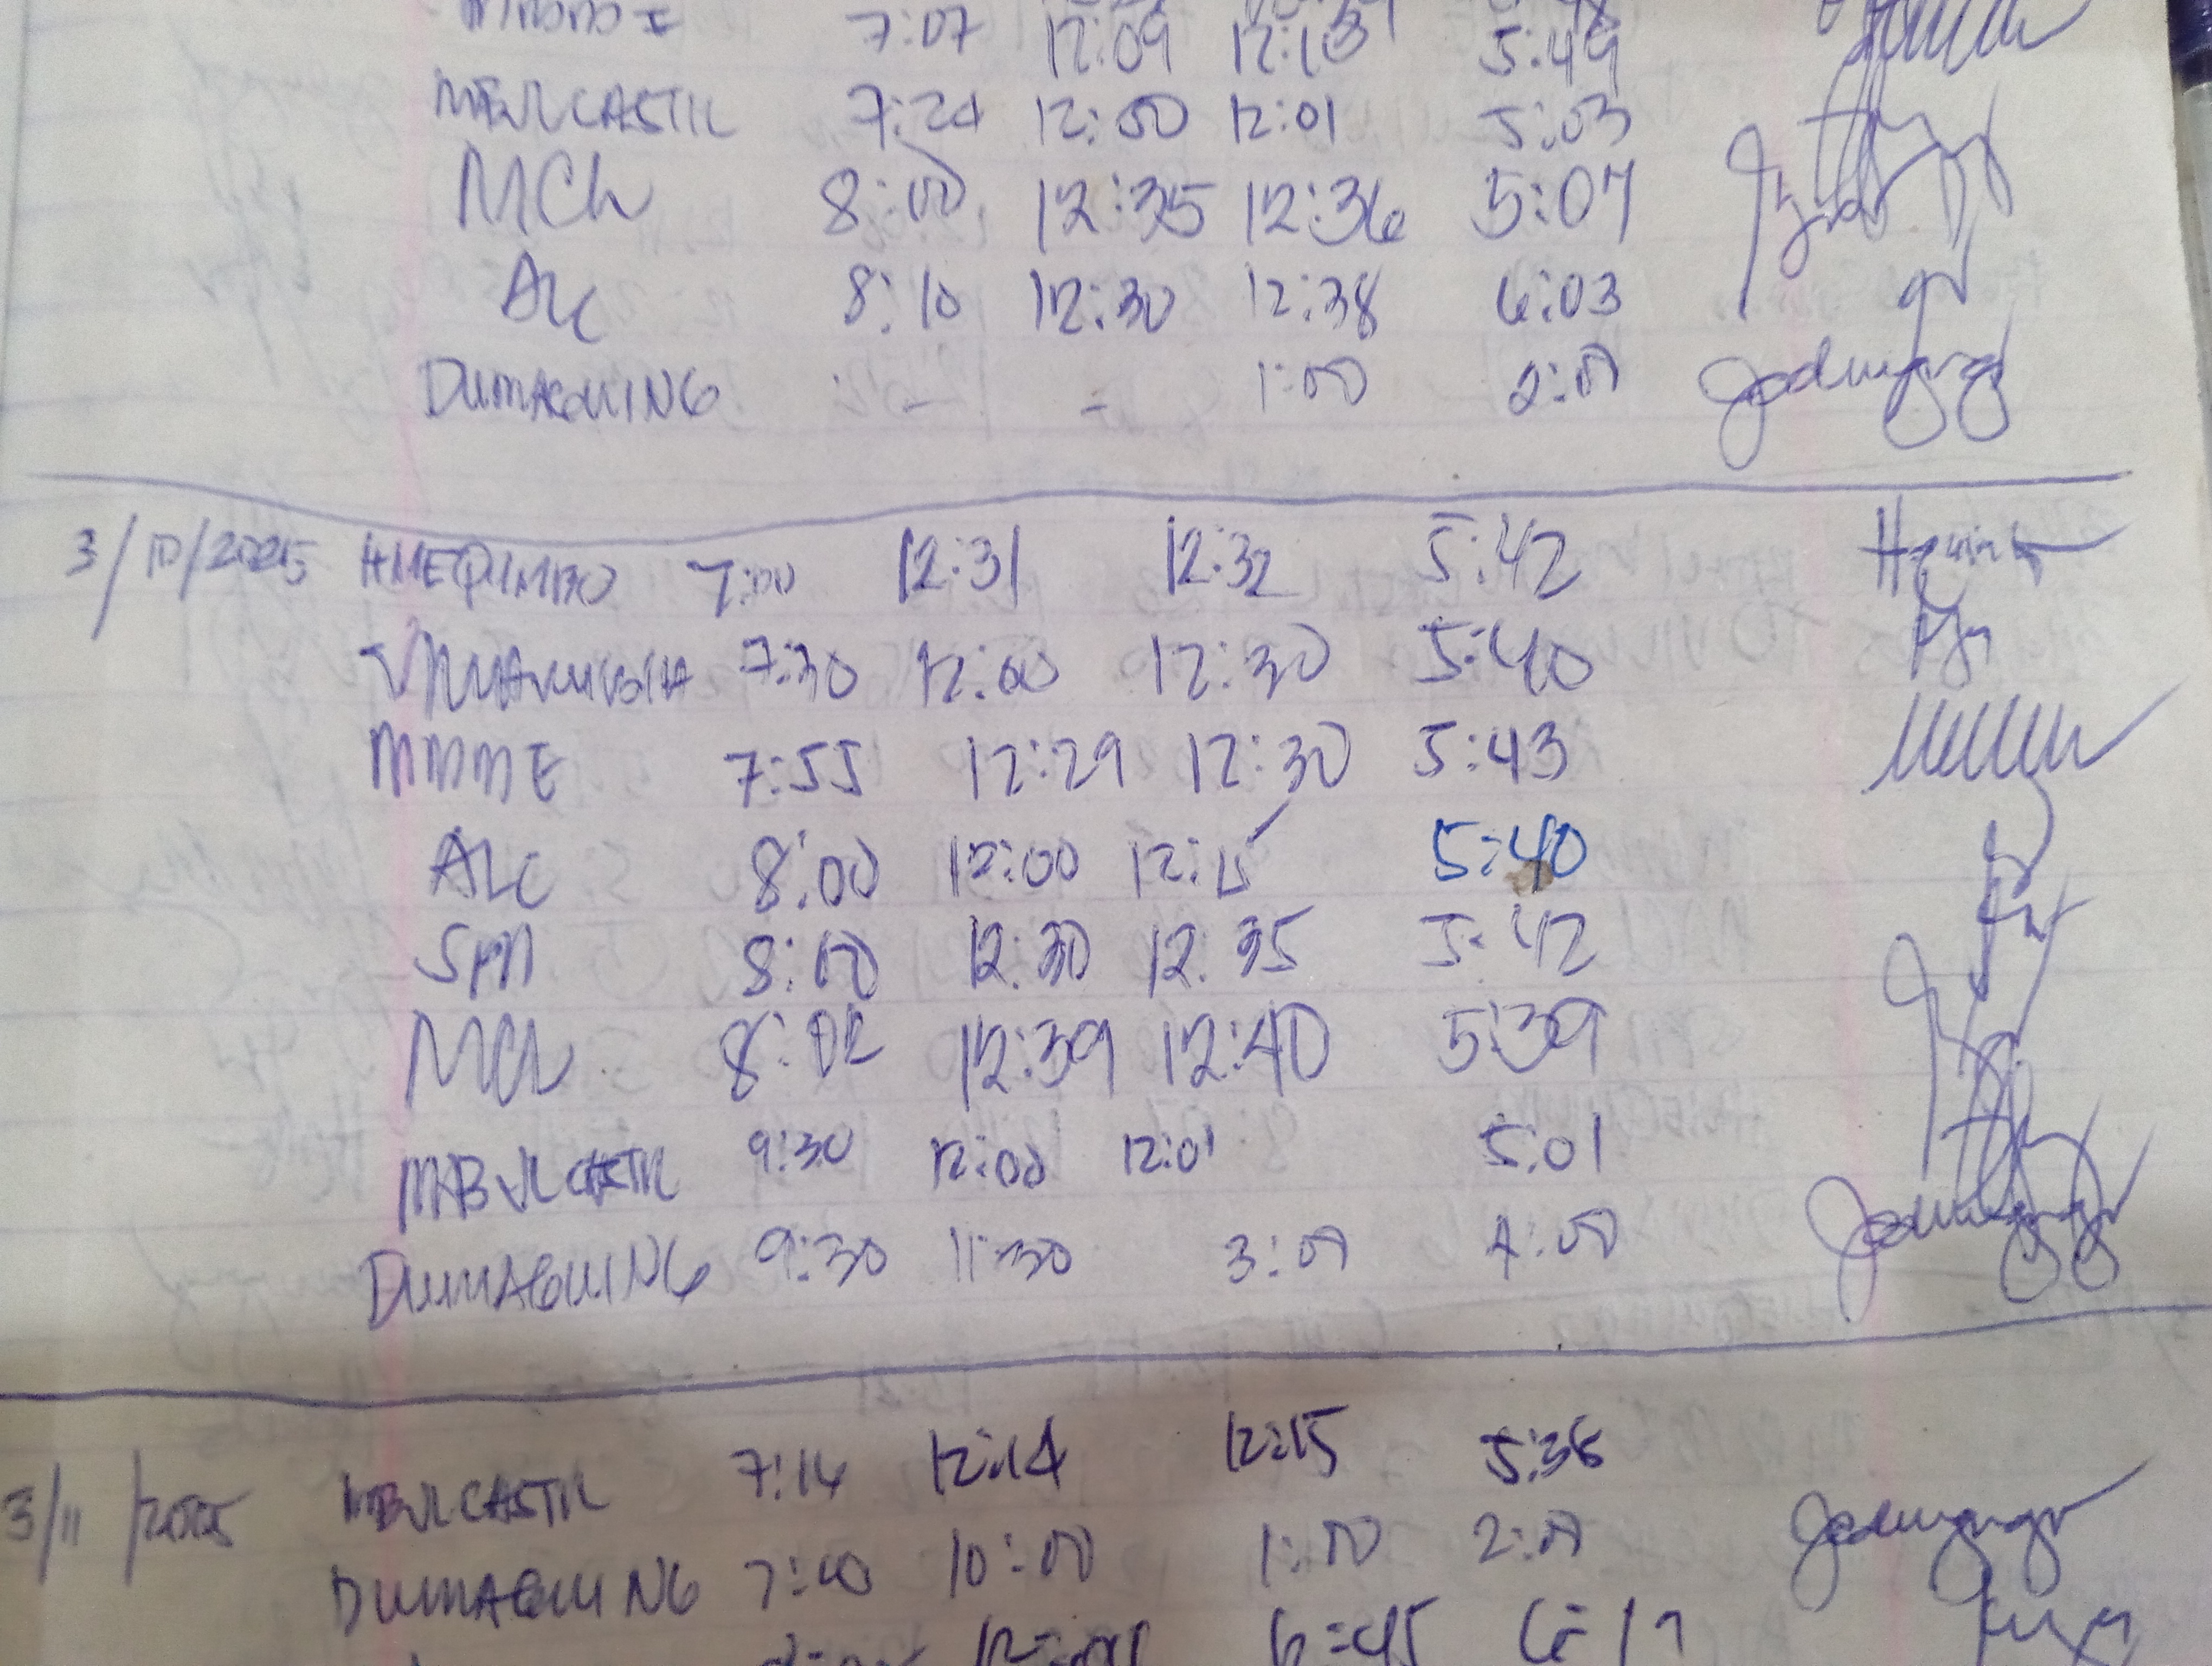 7:07 12:09 12:13 5:49
MBVLCASTIL 7:24 12:00 12:01 5:03
MCL 8:00 12:35 12:36 5:07
ALC 8:10 12:30 12:38 6:03
DUMAGUING - - 1:00 2:00
3/10/2025 HMEQUIMBO 7:00 12:31 12:32 5:42
7:30 12:00 12:30 5:40
MMME 7:55 12:29 12:30 5:43
ALC 8:00 12:00 12:15 5:40
SPM 8:00 12:30 12:35 5:42
MCL 8:02 12:39 12:40 5:39
MBVLCASTIL 9:30 12:00 12:01 5:01
DUMAGUING 9:30 11:30 3:00 4:00
3/11/2025 MBVLCASTIL 7:14 12:14 12:15 5:38
DUMAGUING 7:00 10:00 1:00 2:00